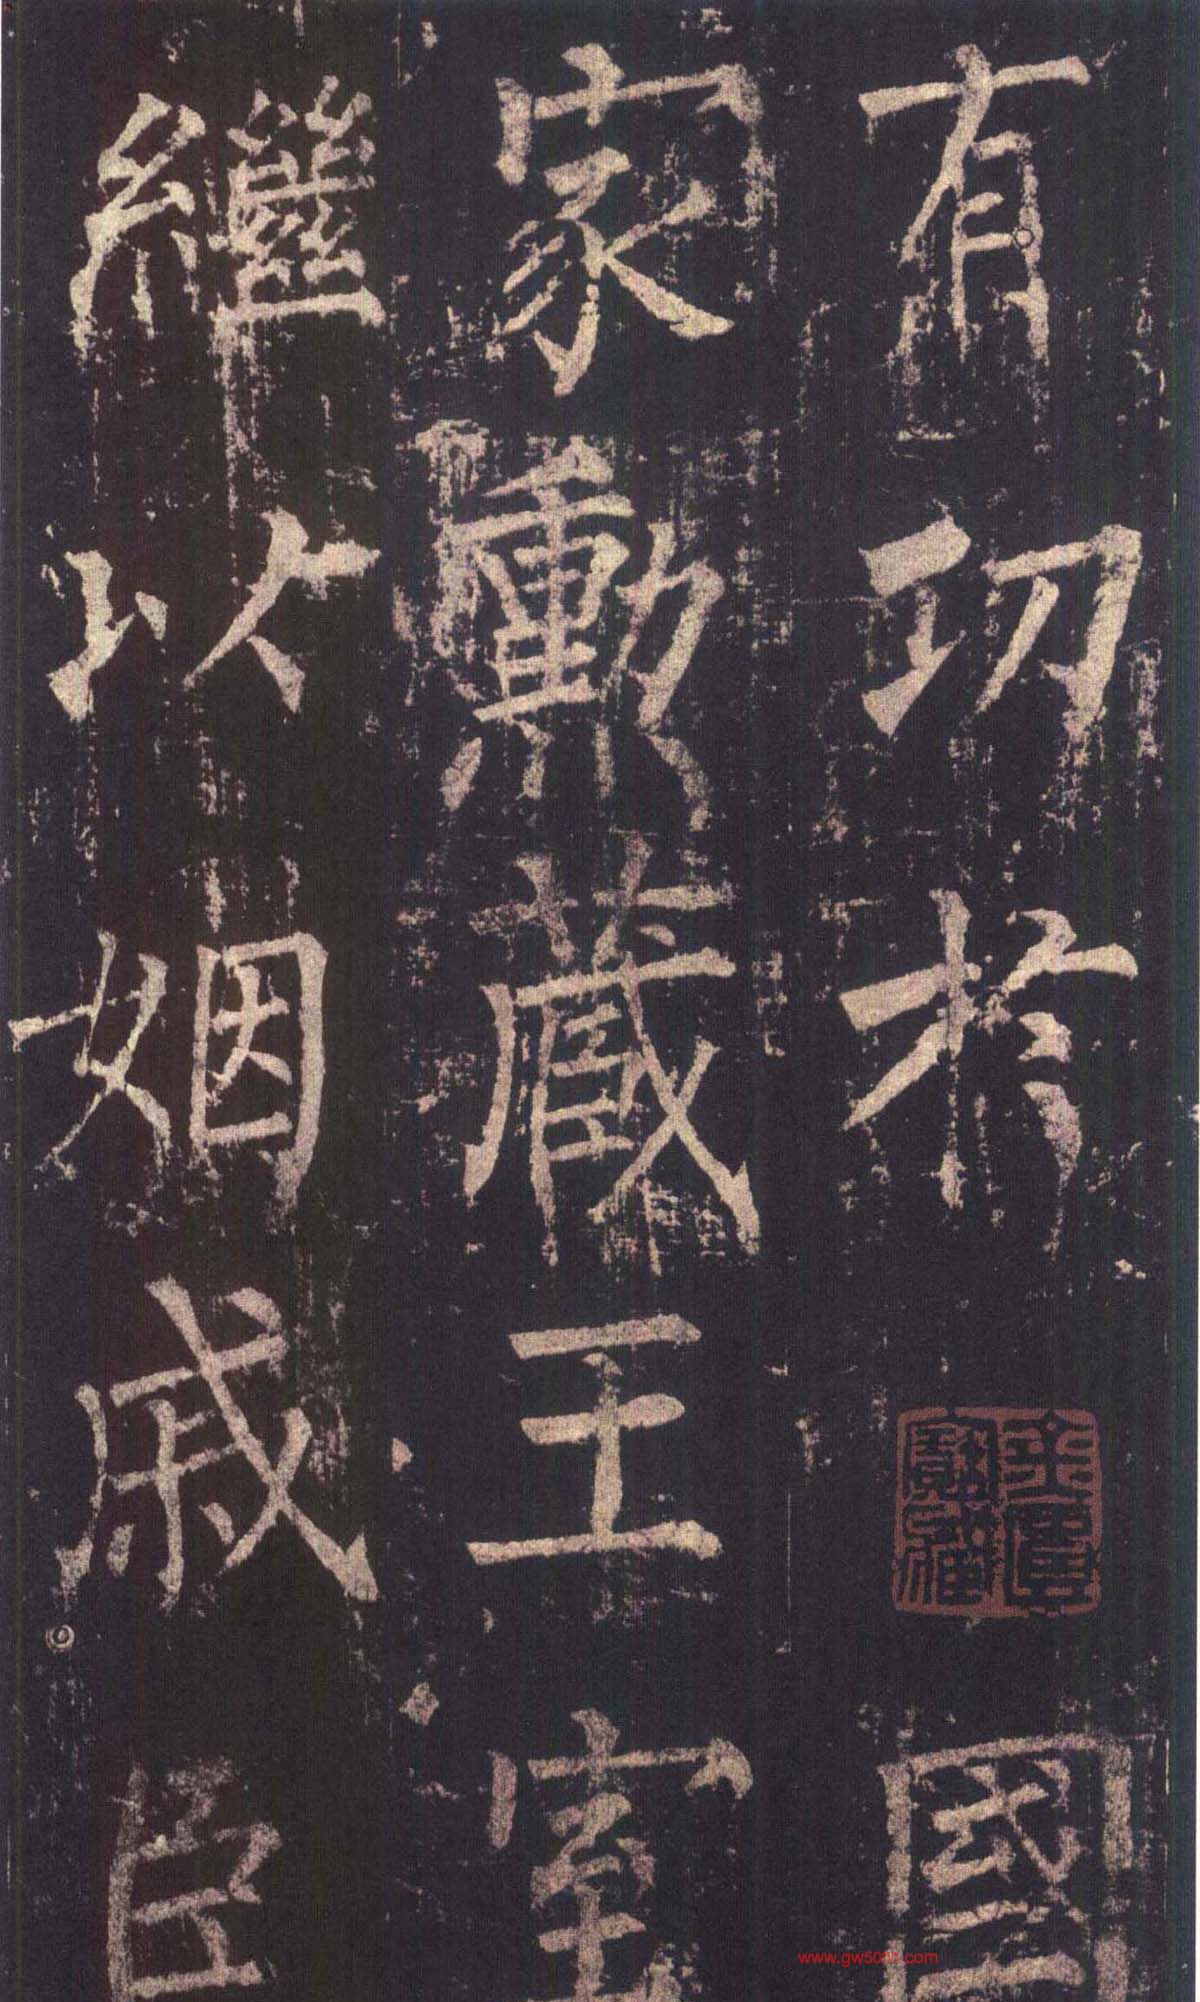 有功於國
家勳藏王室
繼以姻戚臣
www.gw5000.com